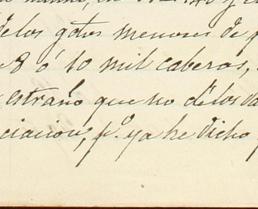 de los g.tos menores de p
8 ó 10 mil cabezas,
estraño que no de los da
ciacion, p.o ya he dicho